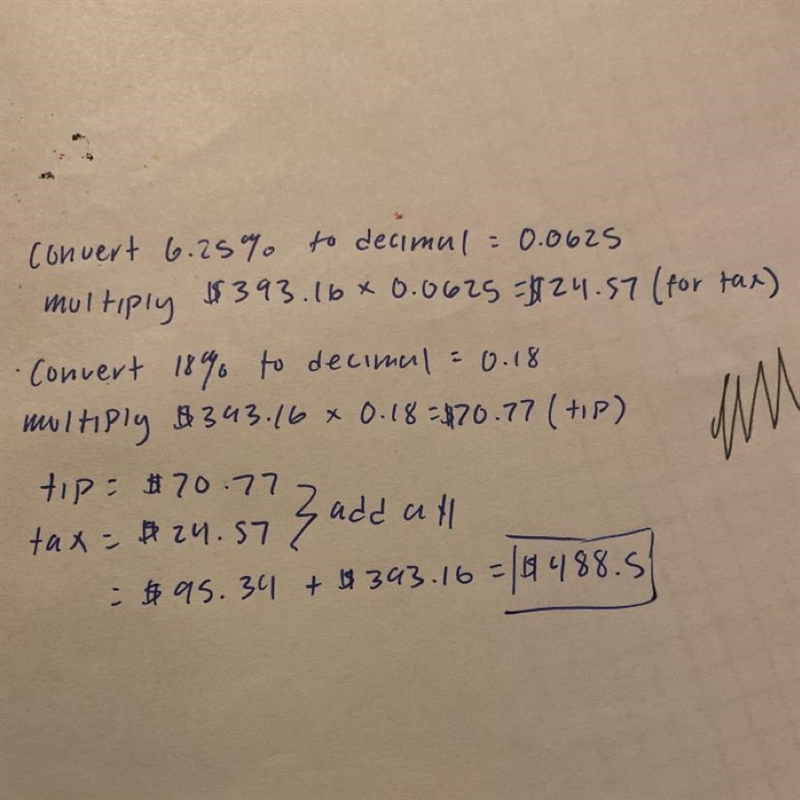 Convert 6.25% to decimal = 0.0625
multiply $393.16 x 0.0625 = $24.57 (for tax)
· Convert 18% to decimal = 0.18
multiply $393.16 x 0.18 = $70.77 (tip)
tip = $70.77
tax = $24.57 } add all
= $95.34 + $393.16 = $488.5